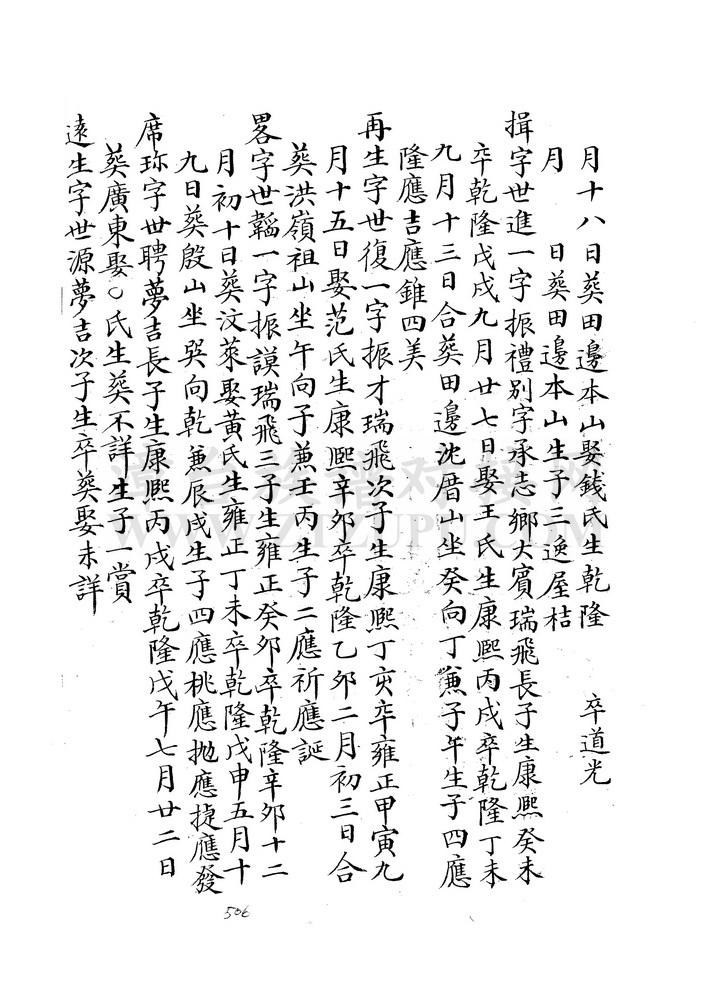 月十八日葵田邊本山娶錢氏生乾隆　卒道光
月　日葵田邊本山生子三逸屋桔
揖字世進一字振禮別字承志鄉大賓瑞飛長子生康熙癸未
卒乾隆戊戌九月廿七日娶王氏生康熙丙戌卒乾隆丁未
九月十三日合葵田邊沈厝山坐癸向丁兼子午生子四應
隆應吉應錐四美
再生字世復一字振才瑞飛次子生康熙丁亥卒雍正甲寅九
月十五日娶范氏生康熙辛卯卒乾隆乙卯二月初三日合
葵洪嶺祖山坐午向子兼壬丙生子二應祈應誕
畧字世韜一字振謨瑞飛三子生雍正癸卯卒乾隆辛卯十二
月初十日葵汶萊娶黃氏生雍正丁未卒乾隆戊申五月十
九日葵殷山坐巽向乾兼辰戌生子四應桃應抛應捷應發
席珎字世聘夢吉長子生康熙丙戌卒乾隆戊午七月廿二日
葵廣東娶○氏生葵不詳生子一賞
遠生字世源夢吉次子生卒葵娶未詳
506
WWW.ZTZUPU.COM